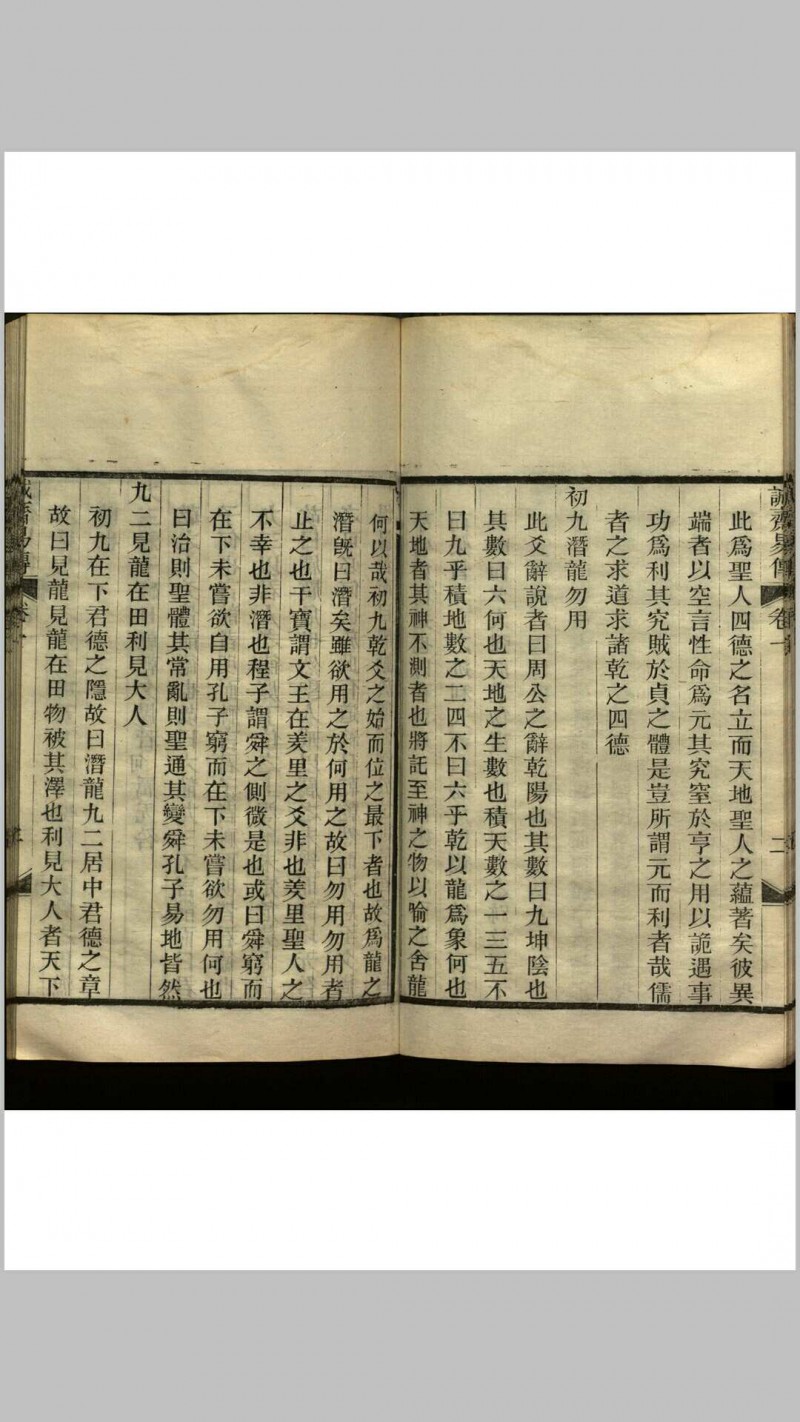 誠齋易傳 卷一 二
此爲聖人四德之名立而天地聖人之蘊著矣彼異
端者以空言性命爲元其究窒於亨之用以詭遇事
功爲利其究賊於貞之體是豈所謂元而利者哉儒
者之求道求諸乾之四德
初九潛龍勿用
此爻辭說者曰周公之辭乾陽也其數曰九坤陰也
其數曰六何也天地之生數也積天數之一三五不
曰九乎積地數之二四不曰六乎乾以龍爲象何也
天地者其神不測者也將託至神之物以喻之舍龍
何以哉初九乾爻之始而位之最下者也故爲龍之
潛旣曰潛矣雖欲用之於何用之故曰勿用勿用者
止之也干寶謂文王在羑里之爻非也羑里聖人之
不幸也非潛也程子謂舜之側微是也或曰舜窮而
在下未嘗欲自用孔子窮而在下未嘗欲勿用何也
曰治則聖體其常亂則聖通其變舜孔子易地皆然
九二見龍在田利見大人
初九在下君德之隱故曰潛龍九二居中君德之章
故曰見龍見龍在田物被其澤也利見大人者天下
誠齋易傳 卷一